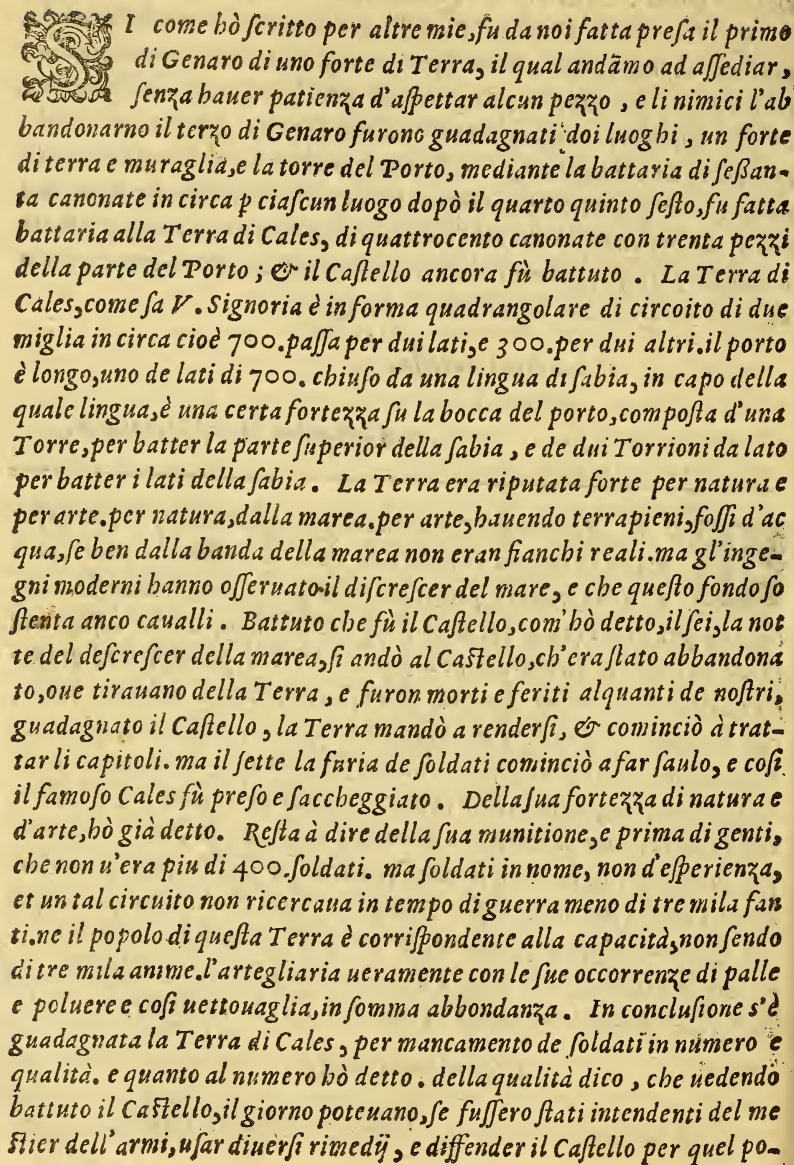 SI come hò ſcritto per altre mie, fu da noi fatta preſa il primo
di Genaro di uno forte di Terra, il qual andãmo ad aſſediar,
ſenza hauer patienza d'aſpettar alcun pezzo, e li nimici l'ab
bandonarno il terzo di Genaro furono guadagnati doi luoghi, un forte
di terra e muraglia, e la torre del Porto, mediante la battaria di ſeßan-
ta canonate in circa p ciaſcun luogo dopò il quarto quinto ſeſto, fu fatta
battaria alla Terra di Cales, di quattrocento canonate con trenta pezzi
della parte del Porto; & il Caſtello ancora fù battuto. La Terra di
Cales, come ſa V. Signoria è in forma quadrangolare di circoito di due
miglia in circa cioè 700. paſſa per dui lati, e 300. per dui altri. il porto
è longo, uno de lati di 700. chiuſo da una lingua di ſabia, in capo della
quale lingua, è una certa fortezza ſu la bocca del porto, compoſta d'una
Torre, per batter la parte ſuperior della ſabia, e de dui Torrioni da lato
per batter i lati della ſabia. La Terra era riputata forte per natura e
per arte. per natura, dalla marea. per arte, hauendo terrapieni, foſſi d'ac
qua, ſe ben dalla banda della marea non eran fianchi reali. ma gl'inge-
gni moderni hanno oſſeruato il diſcreſcer del mare, e che queſto fondo ſo
ſtenta anco caualli. Battuto che fù il Caſtello, com'hò detto, il ſei, la not
te del deſcreſcer della marea, ſi andò al Caſtello, ch'era ſtato abbandona
to, oue tirauano della Terra, e furon morti e feriti alquanti de noſtri,
guadagnato il Caſtello, la Terra mandò a renderſi, & cominciò à trat-
tar li capitoli. ma il ſette la furia de ſoldati cominciò a far ſaulo, e coſi
il famoſo Cales fù preſo e ſaccheggiato. Della ſua fortezza di natura e
d'arte, hò già detto. Reſta à dire della ſua munitione, e prima di genti,
che non u'era piu di 400. ſoldati. ma ſoldati in nome, non d'eſperienza,
et un tal circuito non ricercaua in tempo di guerra meno di tre mila fan
ti. ne il popolo di queſta Terra è corriſpondente alla capacità, non ſendo
di tre mila anime. l'artegliaria ueramente con le ſue occorrenze di palle
e poluere e coſi uettouaglia, in ſomma abbondanza. In concluſione s'è
guadagnata la Terra di Cales, per mancamento de ſoldati in numero e
qualità. e quanto al numero hò detto. della qualità dico, che uedendo
battuto il Caſtello, il giorno poteuano, ſe fuſſero ſtati intendenti del me
ſtier dell'armi, uſar diuerſi rimedij, e diffender il Caſtello per quel po-